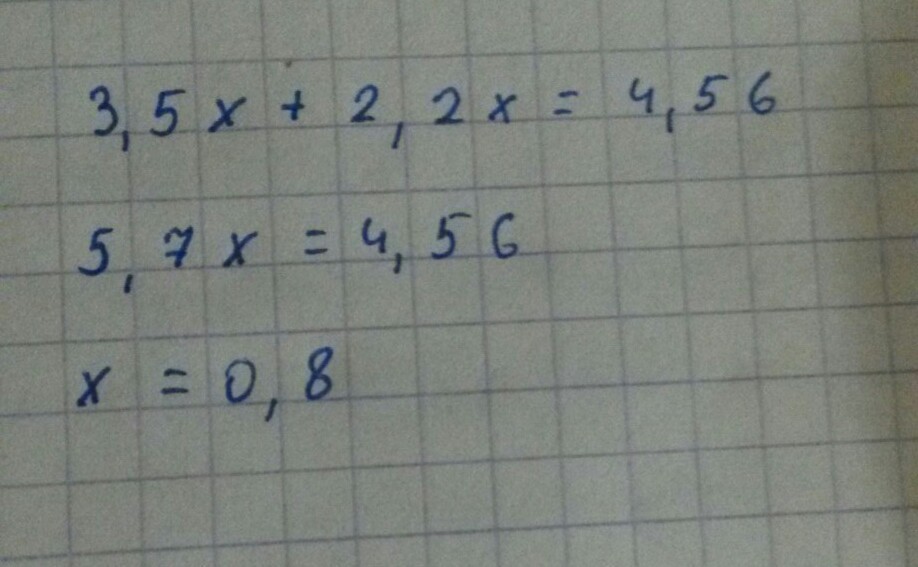 3,5x + 2,2x = 4,56
5,7x = 4,56
x = 0,8